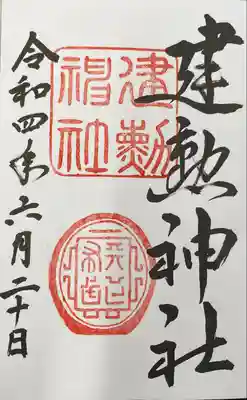 建勲神社
建勲神社
令和四年六月二十日